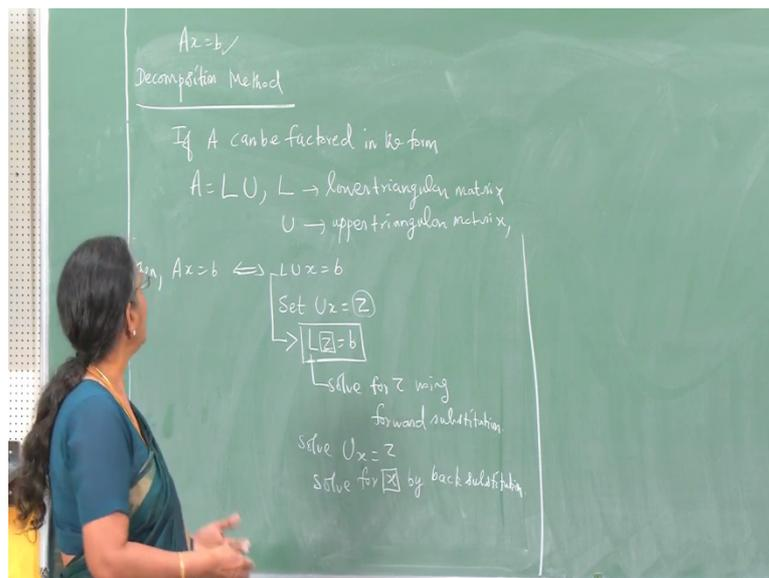 Ax=b✓
Decomposition Method
If A can be factored in the form
A=LU, L → lower triangular matrix
U → upper triangular matrix,
Ax=b ⟺ LUx=b
Set Ux=z
Lz=b
solve for z using
forward substitution.
solve Ux=z
solve for x by back substitution.